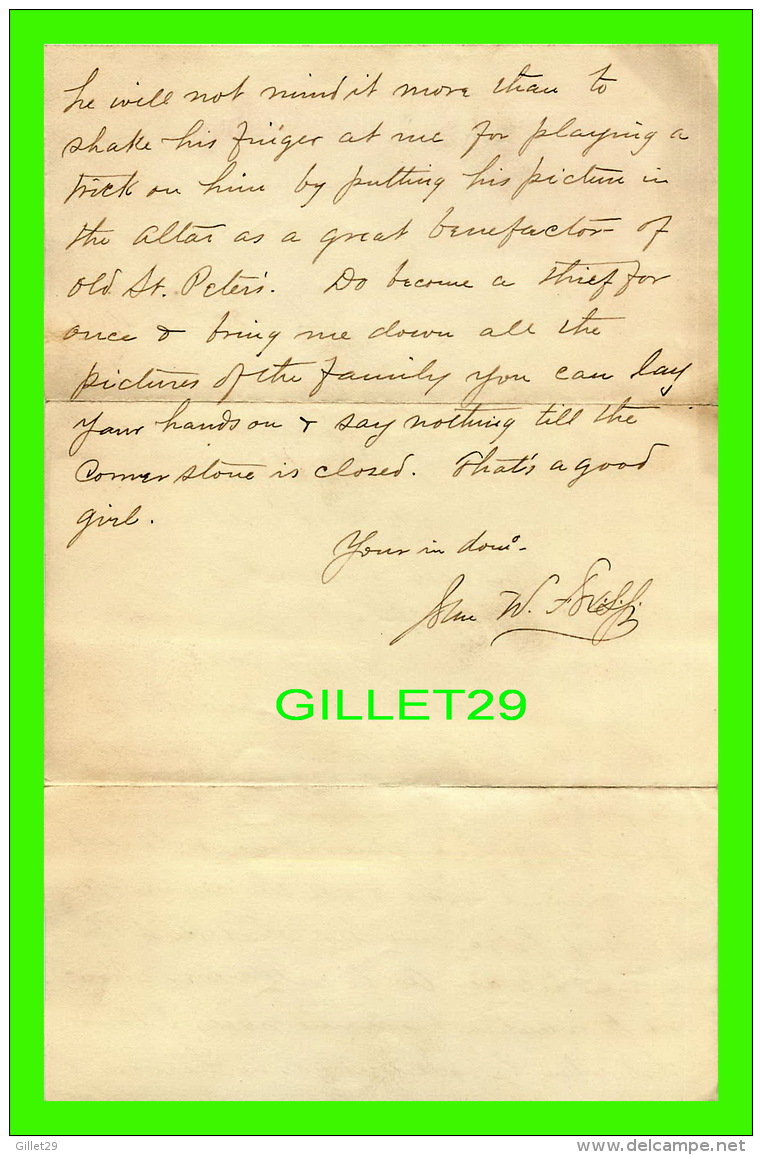 he will not mind it more than to
shake his finger at me for playing a
trick on him by putting his picture in
the altar as a great benefactor of
old St. Peter's. Do become a thief for
once & bring me down all the
pictures of the family you can lay
your hands on & say nothing till the
corner stone is closed. That's a good
girl.
Your in dom°.
John W.
GILLET29
Gillet29
www.delcampe.net